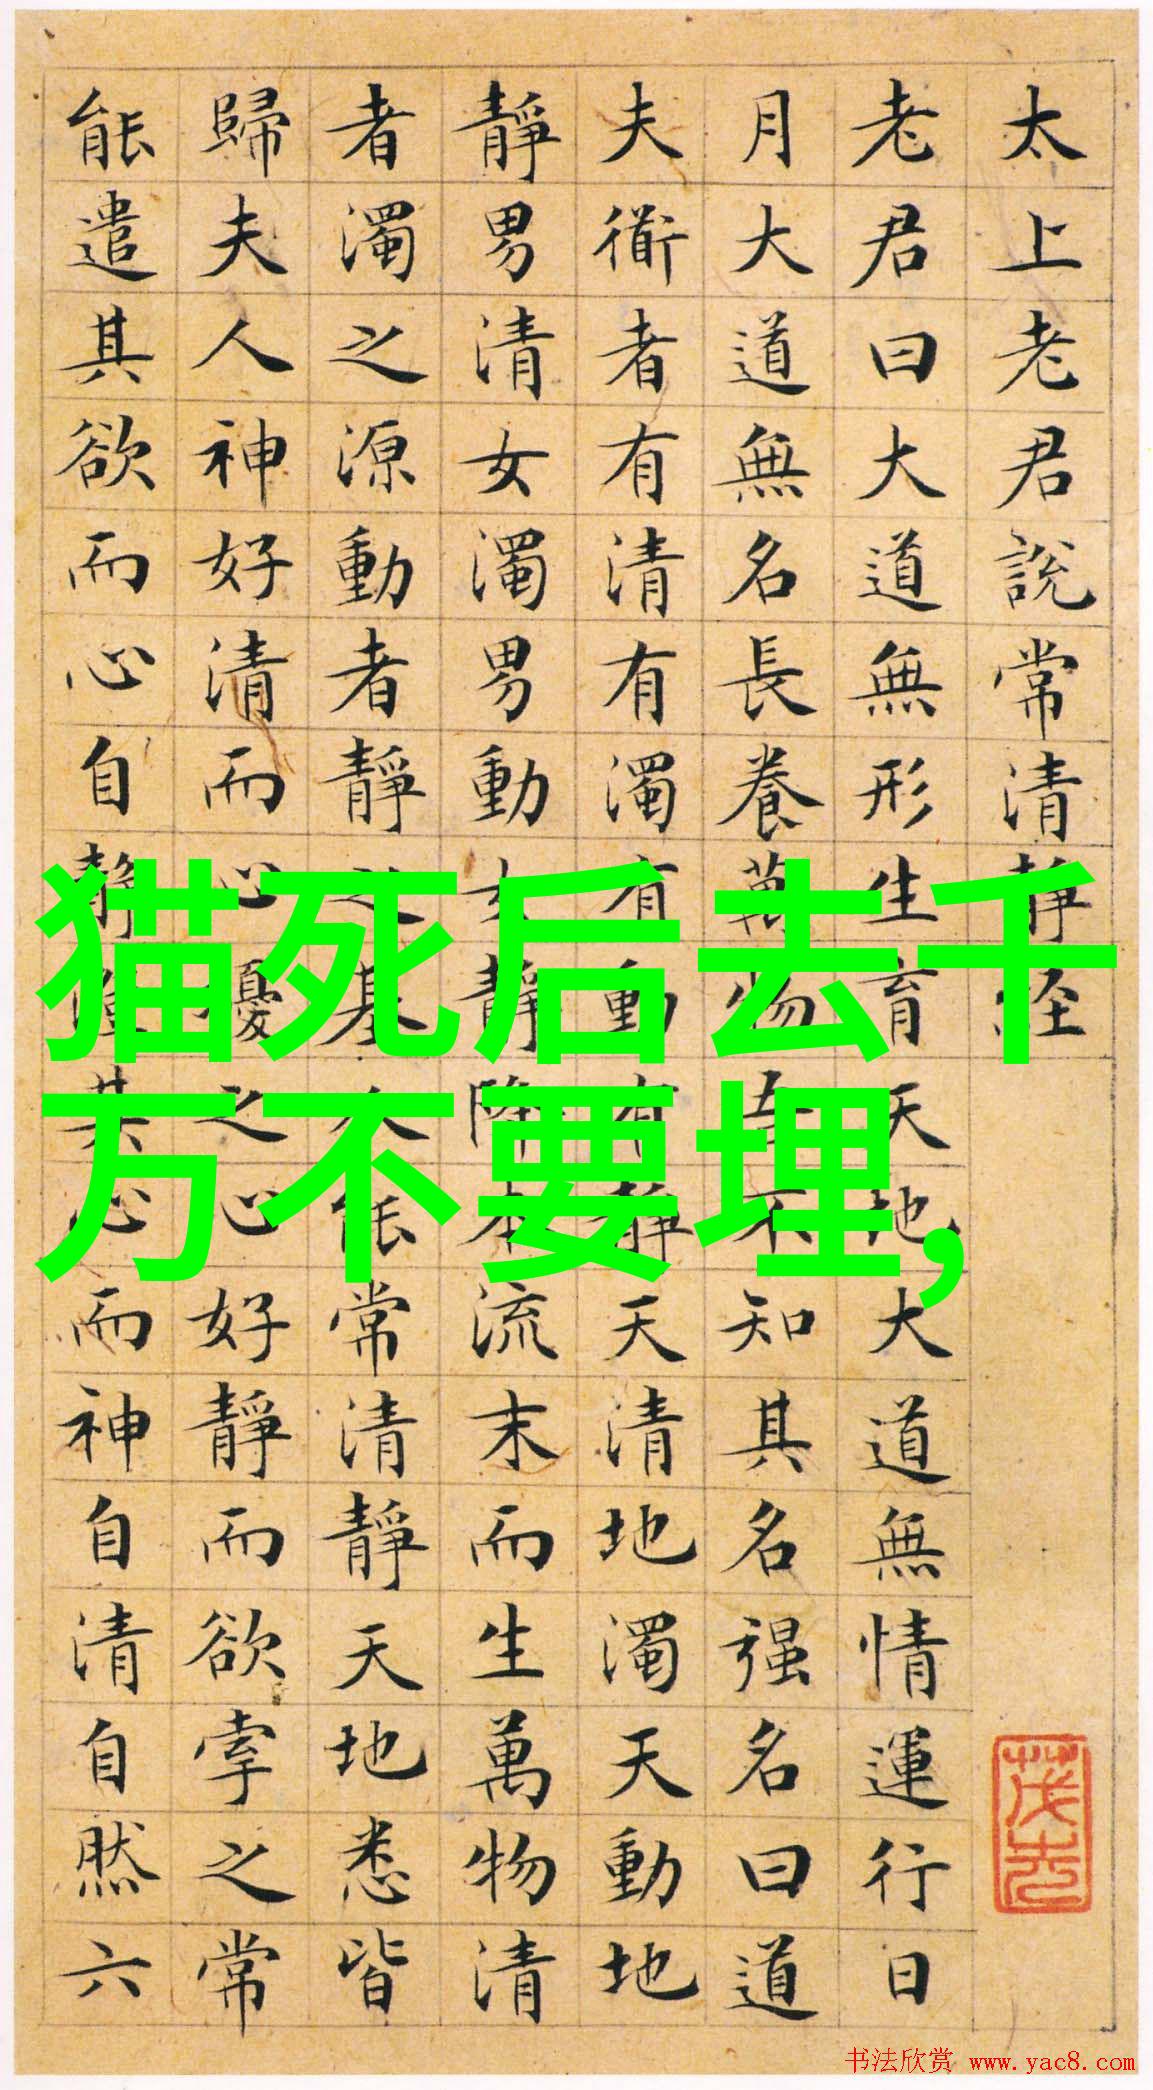 太上老君說常清靜經
老君曰大道無形生育天地大道無情運行日
月大道無名長養萬物吾不知其名强名曰道
夫衜者有清有濁有動有靜天清地濁天動地
靜男清女濁男動女靜降本流末而生萬物清
者濁之源動者靜之基人能常清靜天地悉皆
歸夫人神好清而心擾之心好靜而欲牽之常
能遣其欲而心自靜澄其心而神自清自然六
猫死后去千
万不要埋,
书法欣赏 www.yac8.com